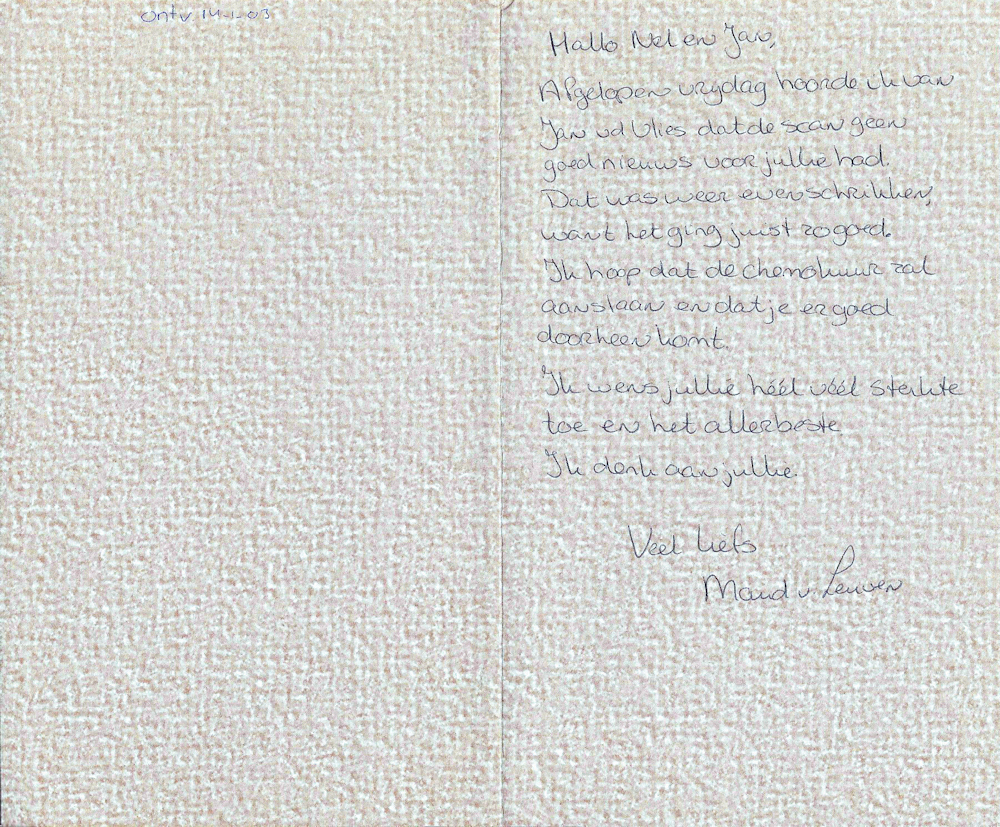 Ontv. 14-1-03
Hallo Nel en Jan,
Afgelopen vrijdag hoorde ik van
Jan vd Vlies dat de scan geen
goed nieuws voor jullie had.
Dat was weer even schrikken,
want het ging juist zo goed.
Ik hoop dat de chemokuur zal
aanslaan en dat je er goed
doorheen komt.
Ik wens jullie héél véél sterkte
toe en het allerbeste
Ik denk aan jullie.
Veel liefs
Maud v. Leuven